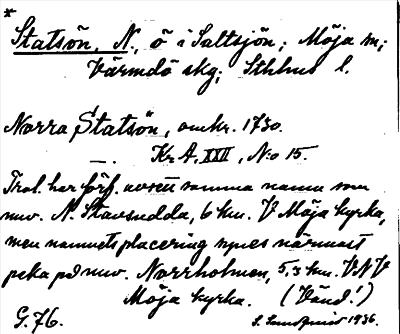 *
Statsön, N., ö i Saltsjön; Möja sn;
Värmdö skg; Sthlms l.
Norra Statsön, omkr. 1730.
— Kr A, XXII, N:o 15.
Trol. har förf. avsett samma namn som
nuv. N. Stavsudda, 6 km. V Möja kyrka,
men namnets placering synes närmast
peka på nuv. Norrholmen, 5,3 km. VNV
Möja kyrka. (Vänd!)
G. 76. S. Lundquist 1936.